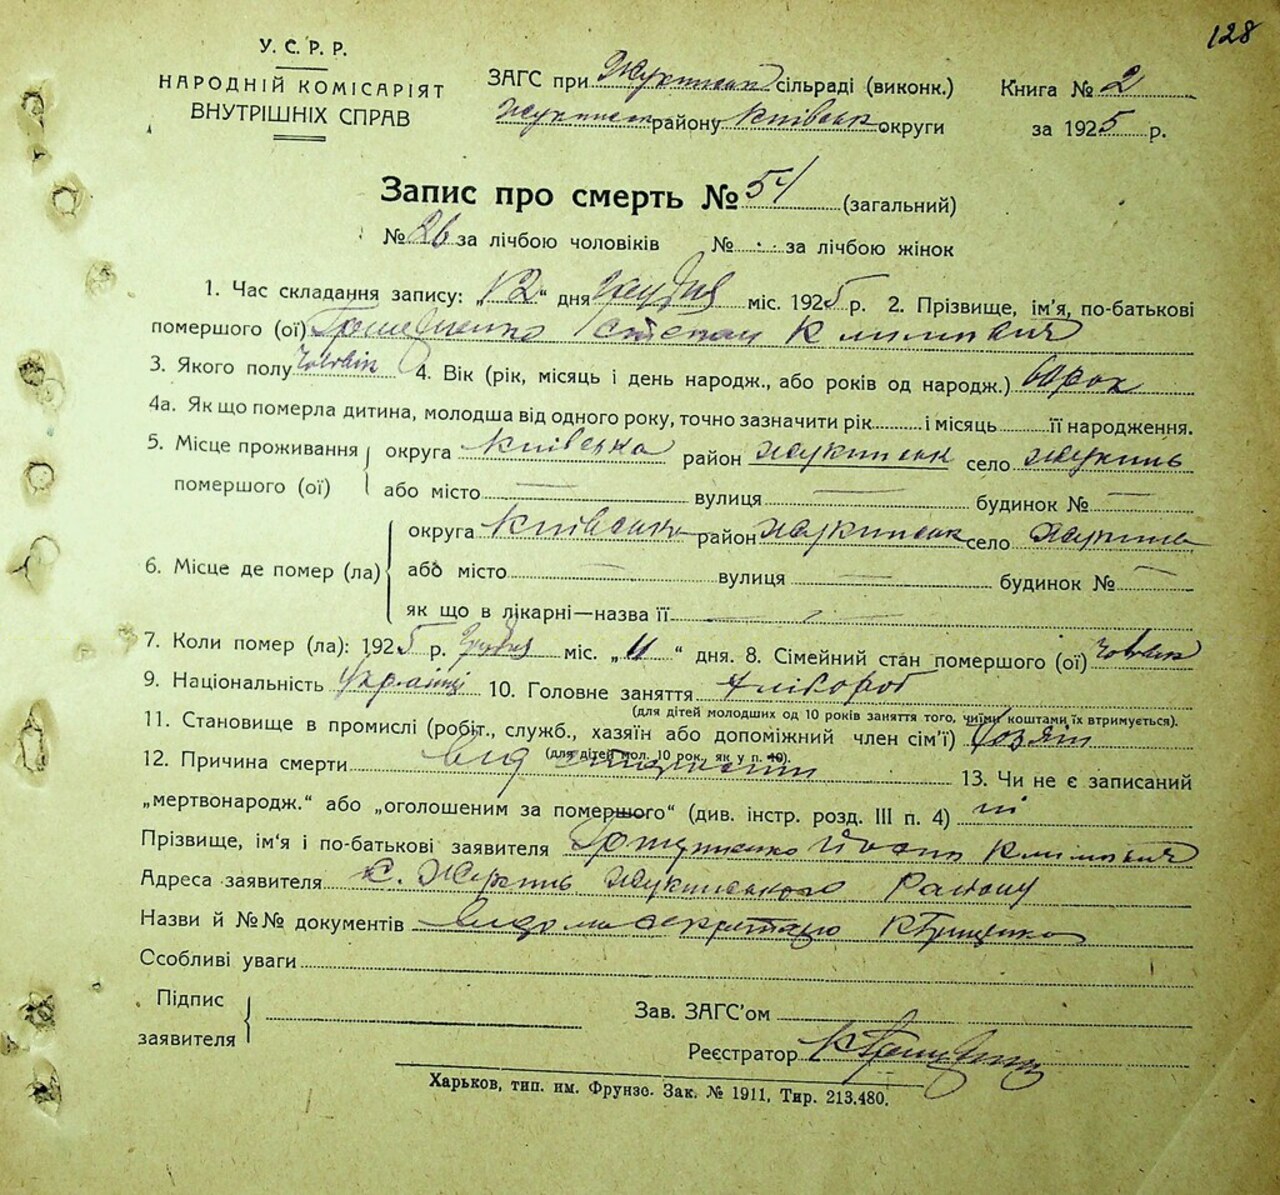 128
У. С. Р. Р.
НАРОДНІЙ КОМІСАРІЯТ
ВНУТРІШНІХ СПРАВ
ЗАГС при Жукинськ сільраді (виконк.)
Жукинськ району Київськ округи
Книга № 2
за 1925 р.
Запис про смерть № 54 (загальний)
№ 26 за лічбою чоловіків № за лічбою жінок
1. Час складання запису: „12“ дня грудня міс. 1925 р. 2. Прізвище, ім'я, по-батькові
помершого (ої) Степан Климович
3. Якого полу чоловік 4. Вік (рік, місяць і день народж., або років од народж.)
4а. Як що померла дитина, молодша від одного року, точно зазначити рік і місяць її народження.
5. Місце проживання помершого (ої) округа Київська район Жукинськ село Жукинь
або місто — вулиця — будинок № —
6. Місце де помер (ла) округа Київська район Жукинськ село Жукинь
або місто — вулиця — будинок № —
як що в лікарні—назва її —
7. Коли помер (ла): 1925 р. Грудня міс. „11“ дня. 8. Сімейний стан помершого (ої) чоловік
9. Національність Українці 10. Головне заняття хлібороб
(для дітей молодших од 10 років заняття того, чиїми коштами їх втримується).
11. Становище в промислі (робіт., служб., хазяїн або допоміжний член сім'ї) хозяїн
(для дітей мол. 10 рок. як у п. 10).
12. Причина смерти від 13. Чи не є записаний
„мертвонародж.“ або „оголошеним за померщого“ (див. інстр. розд. III п. 4) ні
Прізвище, ім'я і по-батькові заявителя Климович
Адреса заявителя с. Жукинь Жукинського Району
Назви й №№ документів К Грищенко
Особливі уваги
Підпис заявителя
Зав. ЗАГС'ом
Реєстратор К Грищенко
Харьков, тип. им. Фрунзе. Зак. № 1911, Тир. 213.480.